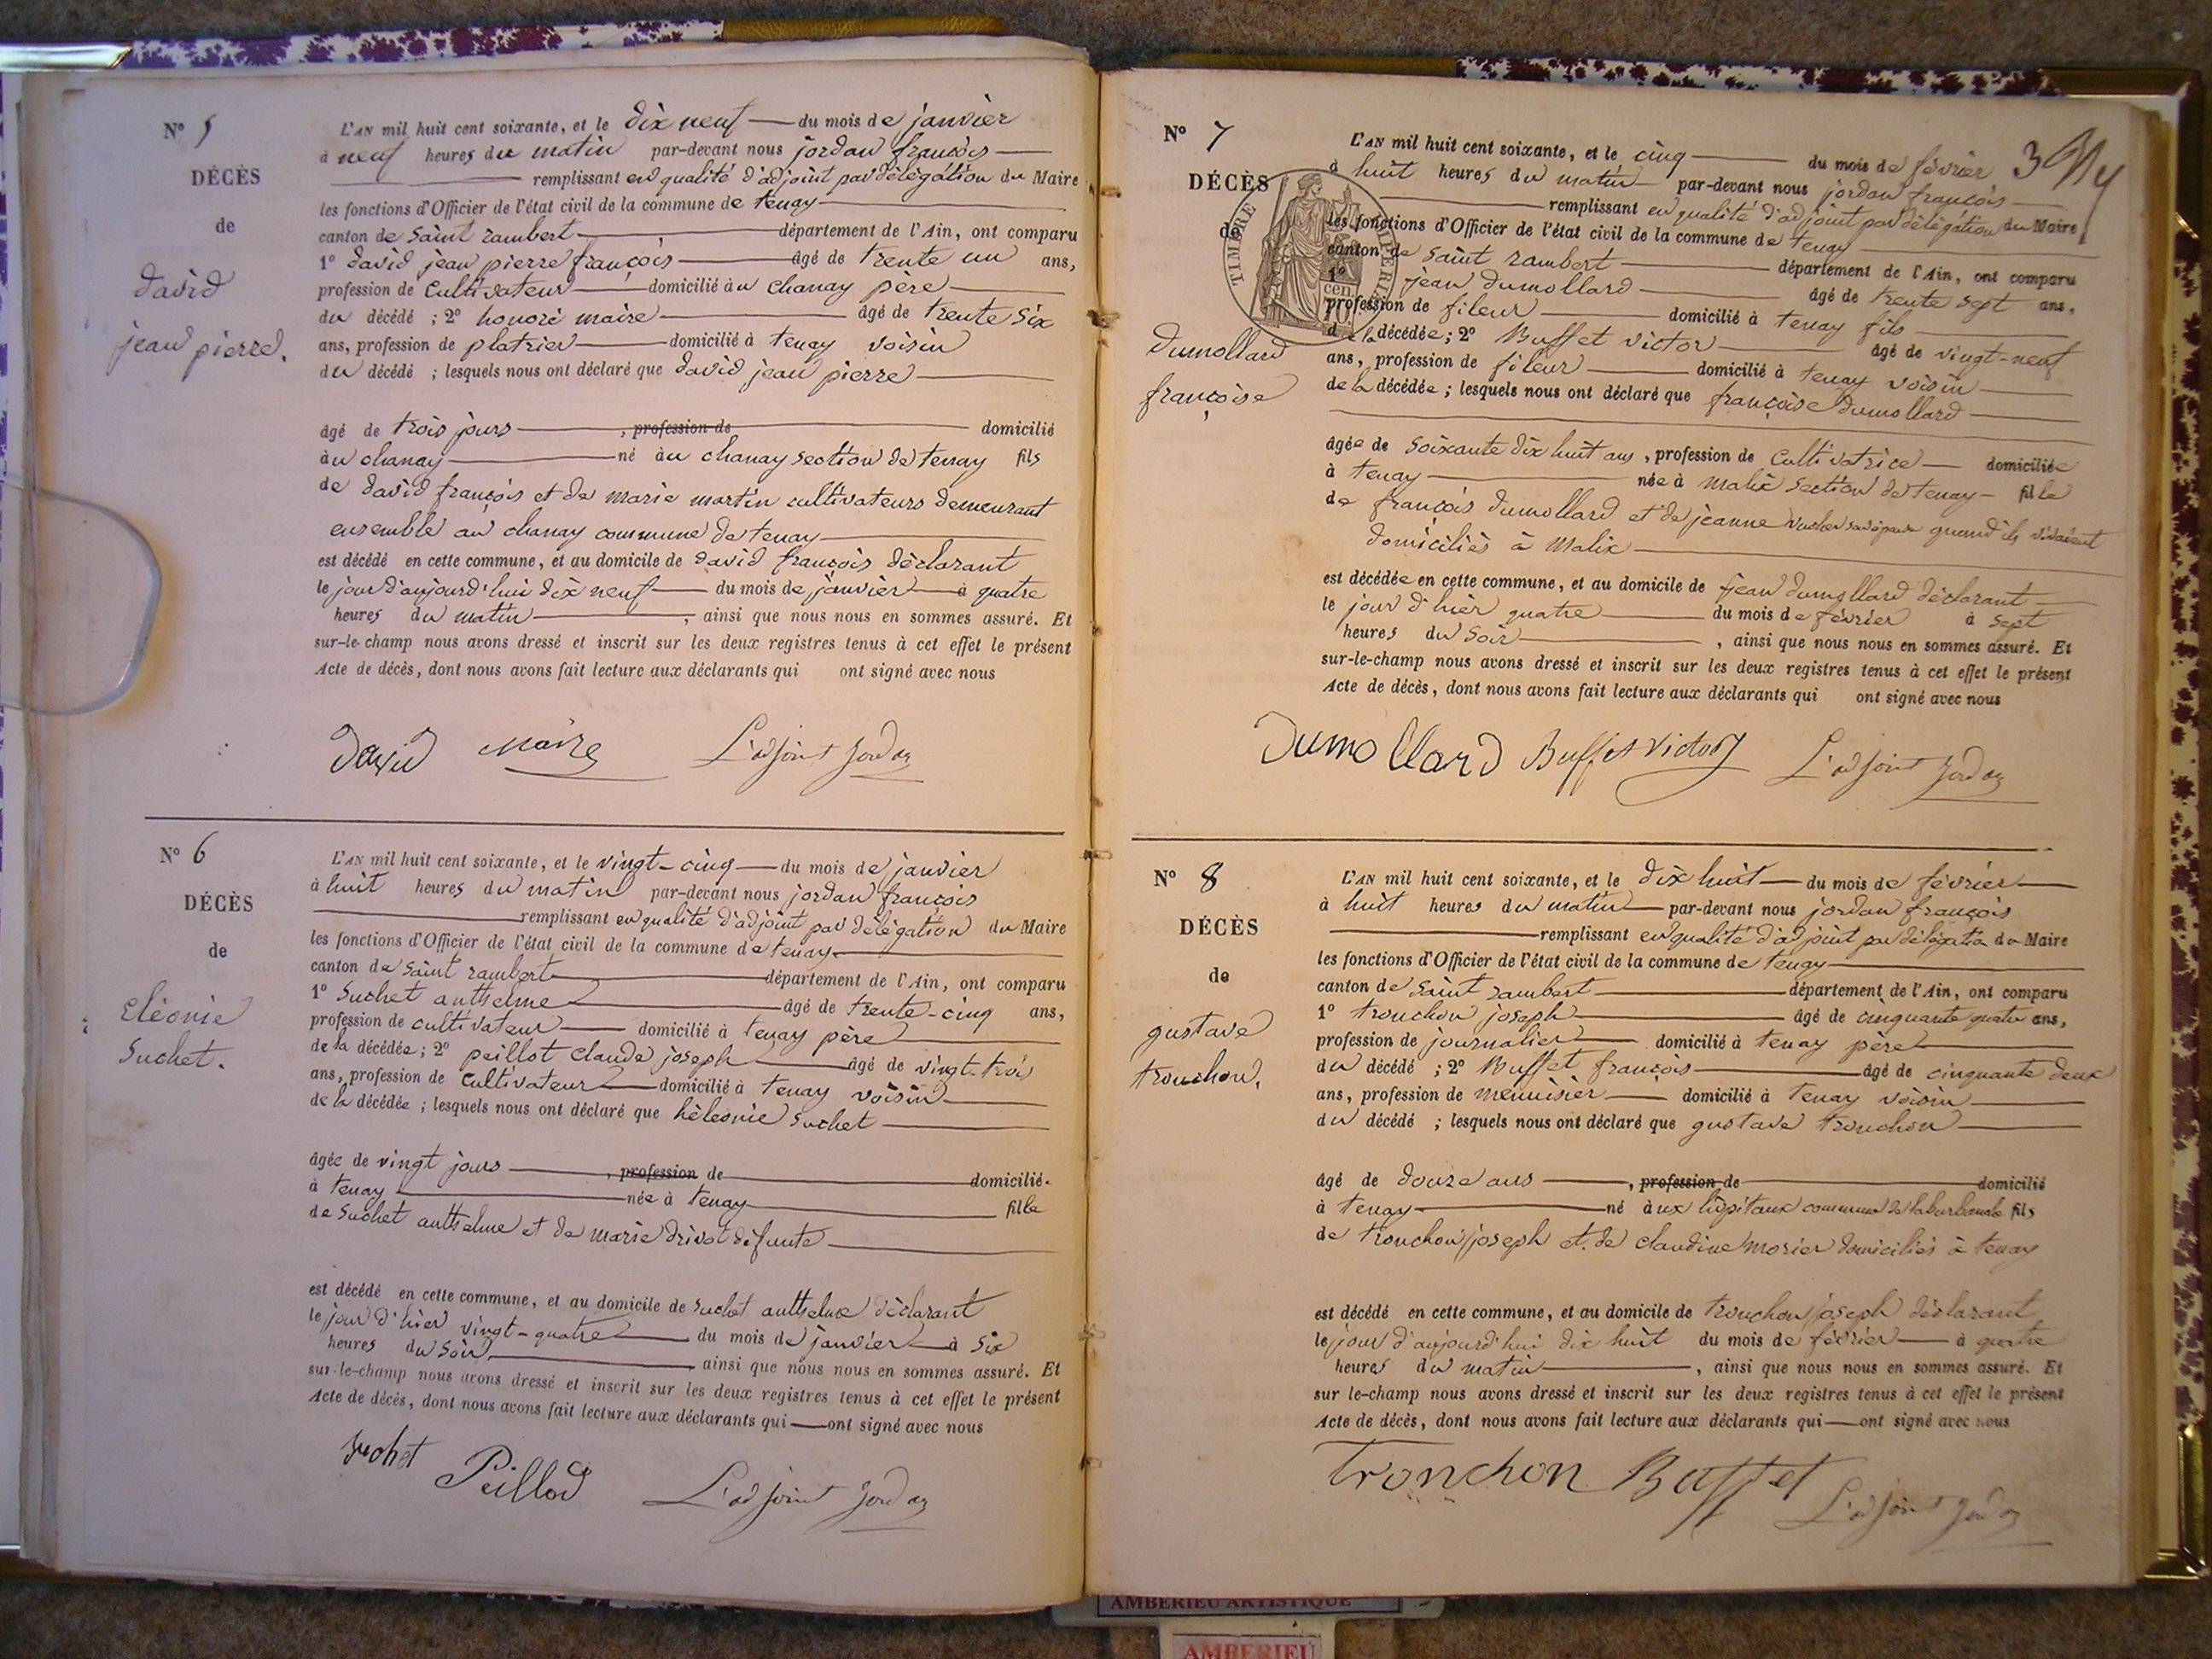 N° 5
DÉCÈS
de
david
jean pierre.
L'AN mil huit cent soixante, et le dix neuf du mois de janvier
à neuf heures du matin par-devant nous jordan françois
remplissant en qualité d'adjoint par délégation du Maire
les fonctions d'Officier de l'état civil de la commune de tenay
canton de saint rambert département de l'Ain, ont comparu
1° david jean pierre françois âgé de trente un ans,
profession de cultivateur domicilié au chanay père
du décédé ; 2° honoré maire âgé de trente six
ans, profession de platrier domicilié à tenay voisin
du décédé ; lesquels nous ont déclaré que david jean pierre
âgé de trois jours , profession de domicilié
au chanay né au chanay section de tenay fils
de david françois et de marie martin cultivateurs demeurant
ensemble au chanay commune de tenay
est décédé en cette commune, et au domicile de david françois déclarant
le jour d'aujourd'hui dix neuf du mois de janvier à quatre
heures du matin , ainsi que nous nous en sommes assuré. Et
sur-le-champ nous avons dressé et inscrit sur les deux registres tenus à cet effet le présent
Acte de décès, dont nous avons fait lecture aux déclarants qui ont signé avec nous
david maire L'adjoint Jordan
N° 6
DÉCÈS
de
eléonie
Suchet.
L'AN mil huit cent soixante, et le vingt-cinq du mois de janvier
à huit heures du matin par-devant nous jordan françois
remplissant en qualité d'adjoint par délégation du Maire
les fonctions d'Officier de l'état civil de la commune de tenay
canton de saint rambert département de l'Ain, ont comparu
1° Suchet anthelme âgé de trente-cinq ans,
profession de cultivateur domicilié à tenay père
de la décédée ; 2° peillot claude joseph âgé de vingt-trois
ans, profession de cultivateur domicilié à tenay voisin
de la décédée ; lesquels nous ont déclaré que hèleonie Suchet
âgée de vingt jours , profession de domicilié
à tenay née à tenay fille
de Suchet anthelme et de marie drivet défunte
est décédé en cette commune, et au domicile de Suchet anthelme déclarant
le jour d'hier vingt-quatre du mois de janvier à six
heures du soir ainsi que nous nous en sommes assuré. Et
sur-le-champ nous avons dressé et inscrit sur les deux registres tenus à cet effet le présent
Acte de décès, dont nous avons fait lecture aux déclarants qui ont signé avec nous
Suchet Peillod L'adjoint Jordan
N° 7
DÉCÈS
de
dumollard
françoise
TIMBRE IMPERIAL
cen.
L'AN mil huit cent soixante, et le cinq du mois de février 3
à huit heures du matin par-devant nous jordan françois
remplissant en qualité d'adjoint par délégation du Maire
les fonctions d'Officier de l'état civil de la commune de tenay
canton de saint rambert département de l'Ain, ont comparu
1° jean dumollard âgé de trente sept ans,
profession de fileur domicilié à tenay fils
de la décédée ; 2° Buffet victor âgé de vingt-neuf
ans, profession de fileur domicilié à tenay voisin
de la décédée ; lesquels nous ont déclaré que françoise dumollard
âgée de soixante dix huit ans , profession de cultivatrice domiciliée
à tenay née à malix section de tenay fille
de françois dumollard et de jeanne quand ils vivaient
domiciliés à malix
est décédée en cette commune, et au domicile de jean dumollard déclarant
le jour d'hier quatre du mois de février à sept
heures du soir , ainsi que nous nous en sommes assuré. Et
sur-le-champ nous avons dressé et inscrit sur les deux registres tenus à cet effet le présent
Acte de décès, dont nous avons fait lecture aux déclarants qui ont signé avec nous
Dumollard Buffet Victor L'adjoint Jordan
N° 8
DÉCÈS
de
gustave
tronchon.
L'AN mil huit cent soixante, et le dix huit du mois de février
à huit heures du matin par-devant nous jordan françois
remplissant en qualité d'adjoint par délégation du Maire
les fonctions d'Officier de l'état civil de la commune de tenay
canton de saint rambert département de l'Ain, ont comparu
1° tronchon joseph âgé de cinquante quatre ans,
profession de journalier domicilié à tenay père
du décédé ; 2° Buffet françois âgé de cinquante deux
ans, profession de menuisier domicilié à tenay voisin
du décédé ; lesquels nous ont déclaré que gustave tronchon
âgé de douze ans , profession de domicilié
à tenay né aux hôpitaux commune de fils
de tronchon joseph et de claudine morier domiciliés à tenay
est décédé en cette commune, et au domicile de tronchon joseph déclarant
le jour d'aujourd'hui dix huit du mois de février à quatre
heures du matin , ainsi que nous nous en sommes assuré. Et
sur le-champ nous avons dressé et inscrit sur les deux registres tenus à cet effet le présent
Acte de décès, dont nous avons fait lecture aux déclarants qui ont signé avec nous
Tronchon Buffet L'adjoint Jordan
AMBERIEU ARTISTIQUE
AMBERIEU